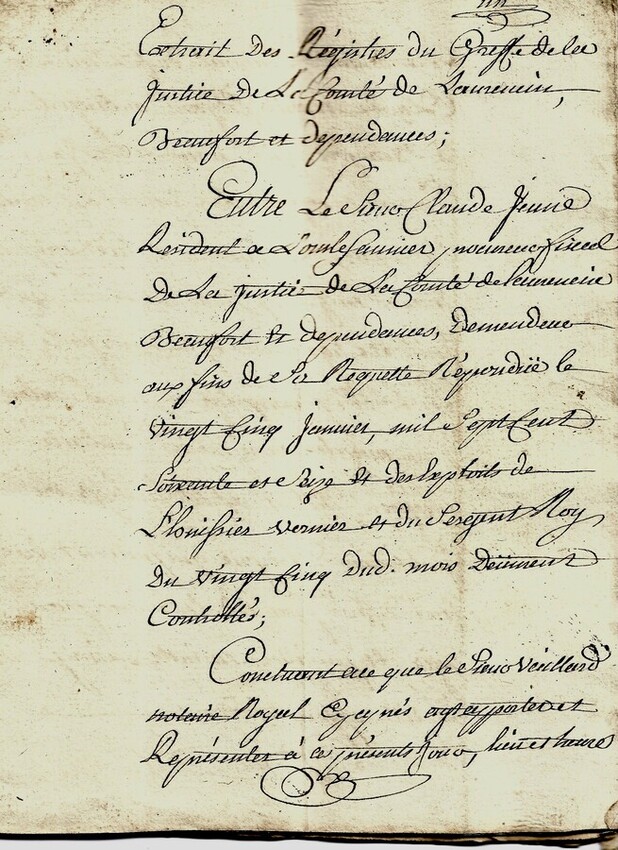 Extrait Des Régistres du Greffe de la
Justice De La Comté de Laurencin,
Beaufort et dependances;
Entre Le Sieur Claude Jeune
Resident a Lonslesaunier, procureur fiscal
De La Justice de La Comté de Laurencin
Beaufort et dependances, demendeur
aux fins de Sa Requette Répondüe le
vingt Cinq Janvier, mil Sept Cent
Soixante et Seize et des Exploits de
L'huissier vernier et du Sergent Roy
Du vingt Cinq dud. mois Deüement
Controllés;
Concluant a ce que le Sieur Veillard
notaire Royal En ayt a apporter et
Représenter à ce présents Jour, lieu et heure